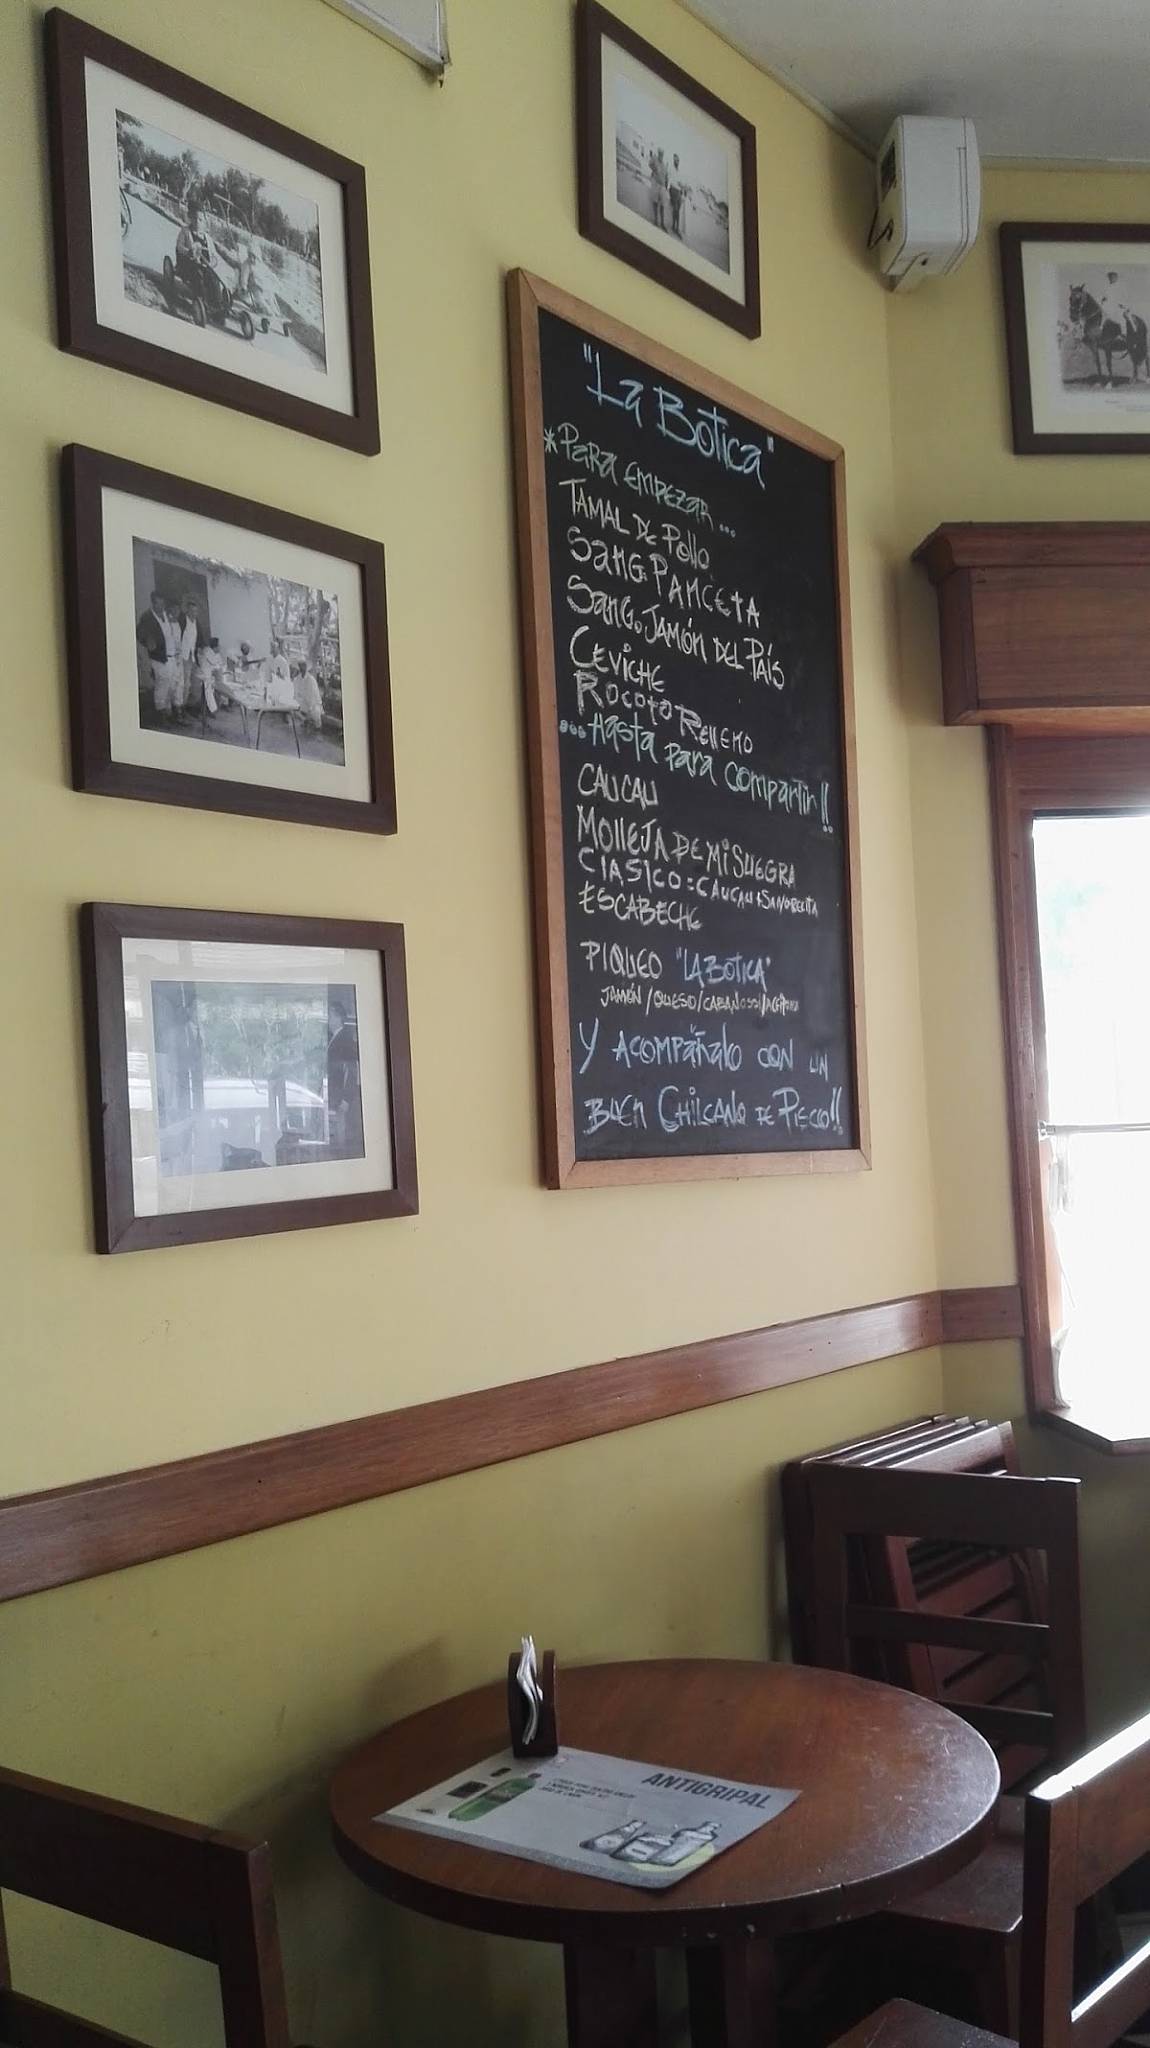 "La Botica"
*Para empezar...
Tamal de Pollo
Sang. Panceta
Sang. Jamón del País
Ceviche
Rocoto Relleno
...Hasta para compartir!!
Caucau
Molleja de mi Suegra
Clasico: Caucau + Sangrecita
Escabeche
Piqueo "La Botica"
Jamón/Queso/Cabanossi/
Y Acompáñalo con un
buen Chilcano de Pisco!!
ANTIGRIPAL